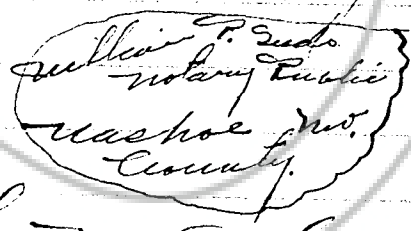 William P. Seeds
Notary Public
Washoe Nv.
County.